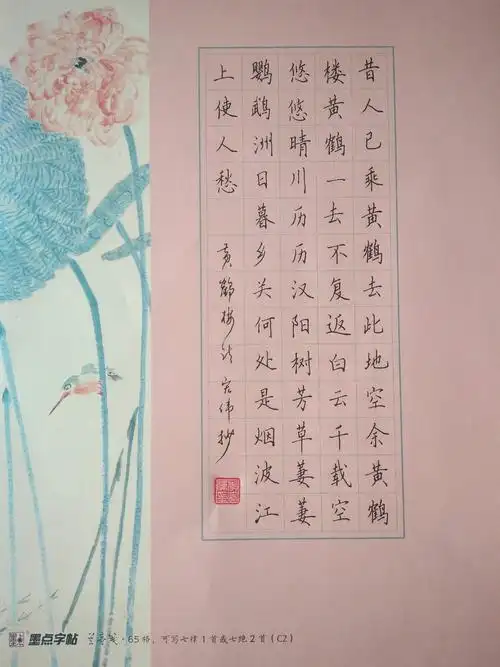 昔人已乘黄鹤去此地空余黄鹤
楼黄鹤一去不复返白云千载空
悠悠晴川历历汉阳树芳草萋萋
鹦鹉洲日暮乡关何处是烟波江
上使人愁 黄鹤楼诗 宏伟抄
墨点字帖 ·65格，可写七律1首或七绝2首(C2)